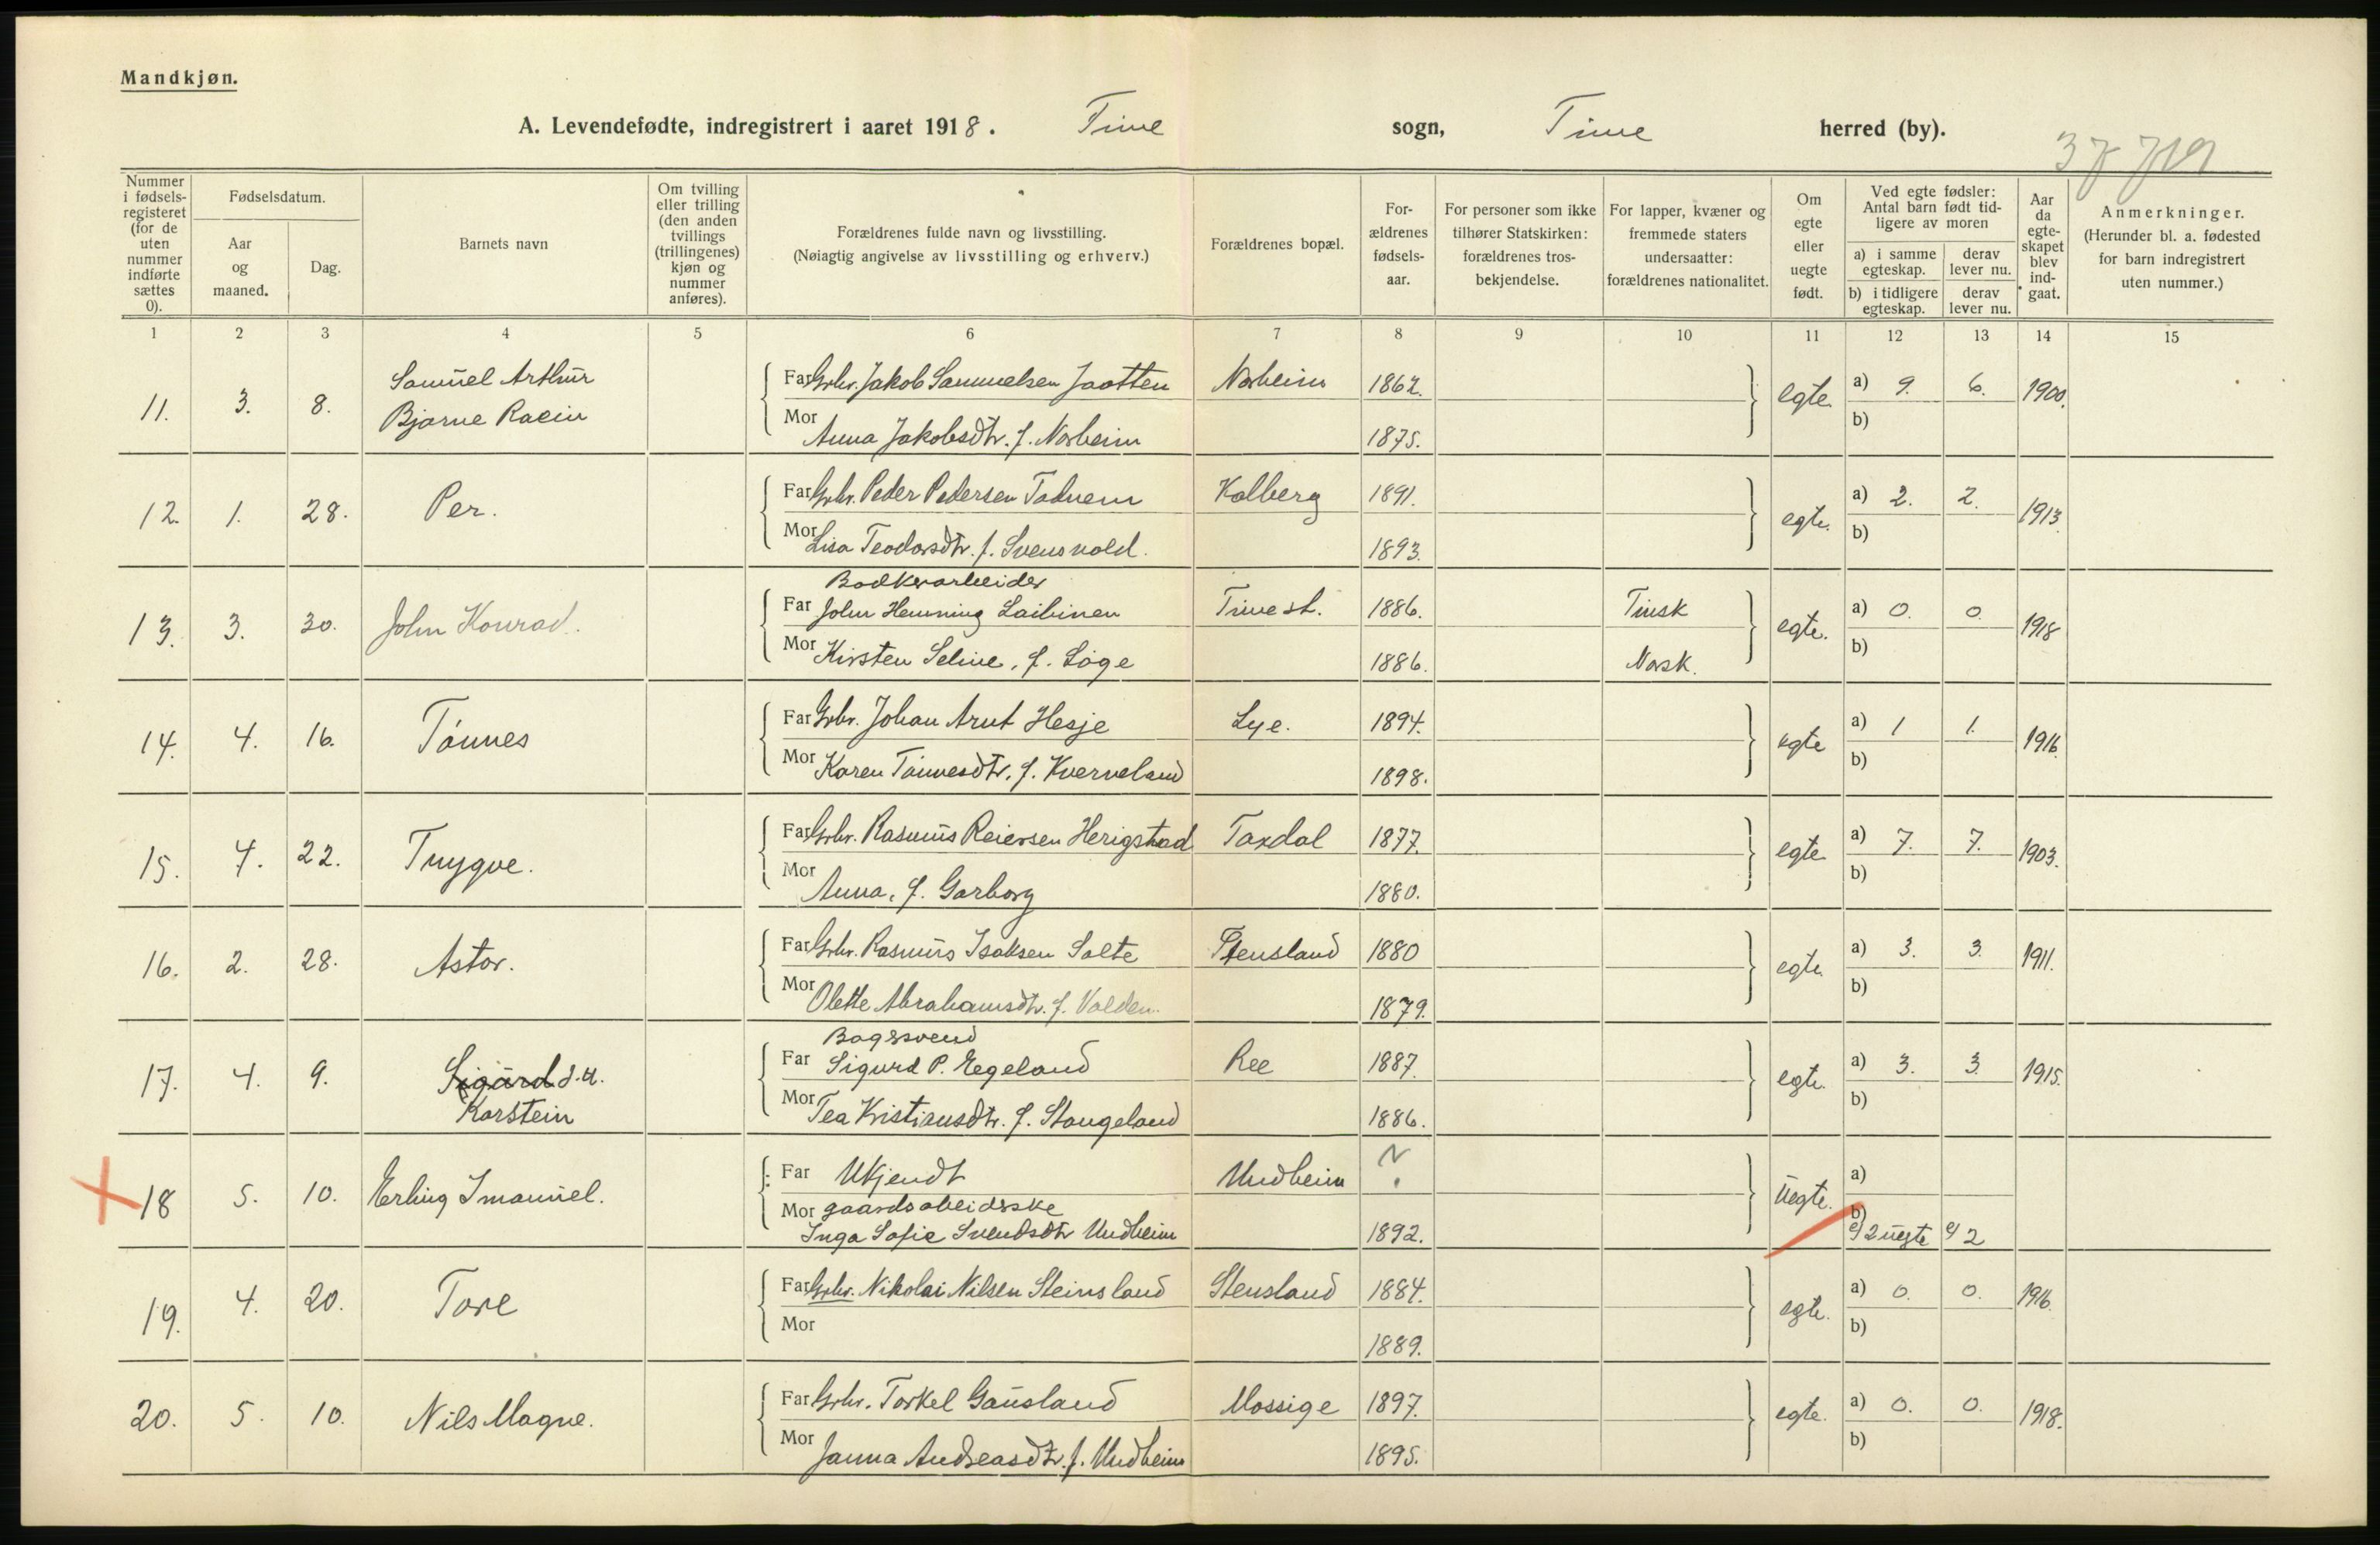 Mandkjøn.
A. Levendefødte, indregistrert i aaret 1918. Time sogn, Time herred (by).
37 719
Nummer i fødsels-registeret (for de uten nummer indførte sættes 0).
Fødselsdatum.
Aar og maaned.
Dag.
Barnets navn
Om tvilling eller trilling (den anden tvillings (trillingenes) kjøn og nummer anføres).
Forældrenes fulde navn og livsstilling.
(Nøiagtig angivelse av livsstilling og erhverv.)
Forældrenes bopæl.
For-ældrenes fødsels-aar.
For personer som ikke tilhører Statskirken: forældrenes tros-bekjendelse.
For lapper, kvæner og fremmede staters undersaatter: forældrenes nationalitet.
Om egte eller uegte født.
Ved egte fødsler: Antal barn født tid-ligere av moren
a) i samme egteskap.
derav lever nu.
b) i tidligere egteskap.
derav lever nu.
Aar da egte-skapet blev ind-gaat.
Anmerkninger.
(Herunder bl. a. fødested for barn indregistrert uten nummer.)
1 2 3 4 5 6 7 8 9 10 11 12 13 14 15
11. 3. 8. Samuel Arthur Bjarne Racin
Far Grbr. Jakob Samuelsen Jaatten Norheim 1862. egte a) 9. 6. 1900.
Mor Anna Jakobsdtr. f. Norheim 1875. b)
12. 1. 28. Per.
Far Grbr. Peder Pedersen Tadnem Kalberg 1891. egte. a) 2. 2. 1913
Mor Lisa Teodorsdtr. f. Svensvold. 1893. b)
13. 3. 30. John Konrad.
Bødkerarbeider
Far John Henning Laitinen Time st. 1886. Finsk egte. a) 0. 0. 1918
Mor Kirsten Seline, f. Løge 1886. Norsk. b)
14. 4. 16. Tønnes
Far Grbr. Johan Arnt Hesje Lye. 1894. egte a) 1 1. 1916
Mor Karen Tønnesdtr. f. Kverneland 1898. b)
15. 4. 22. Trygve.
Far Grbr. Rasmus Reiersen Herigstad Taxdal 1877. egte a) 7. 7. 1903.
Mor Anna, f. Garborg 1880. b)
16. 2. 28. Astor.
Far Grbr. Rasmus Isaksen Salte Stensland 1880 egte a) 3. 3. 1911.
Mor Olette Abrahamsdtr. f. Valden. 1879. b)
17. 4. 9. Sigurd d.u. Karstein
Bagersvend
Far Sigurd P. Egeland Ree 1887. egte. a) 3. 3. 1915.
Mor Tea Kristiansdtr. f. Stangeland 1886. b)
18 5. 10. Erling Imanuel.
Far Ukjendt Undheim ? uegte. a)
Mor gaardsarbeiderske b)
Inga Sofie Svendsdtr Undheim 1892. c) 2 uegte c) 2
19. 4. 20. Tore
Far Grbr. Nikolai Nilsen Steinsland Stensland 1884. egte. a) 0. 0. 1916.
Mor 1889. b)
20. 5. 10. Nils Magne.
Far Grbr. Torkel Gausland Mossige 1897. egte. a) 0. 0. 1918.
Mor Janna Andreasdtr. f. Undheim 1895. b)